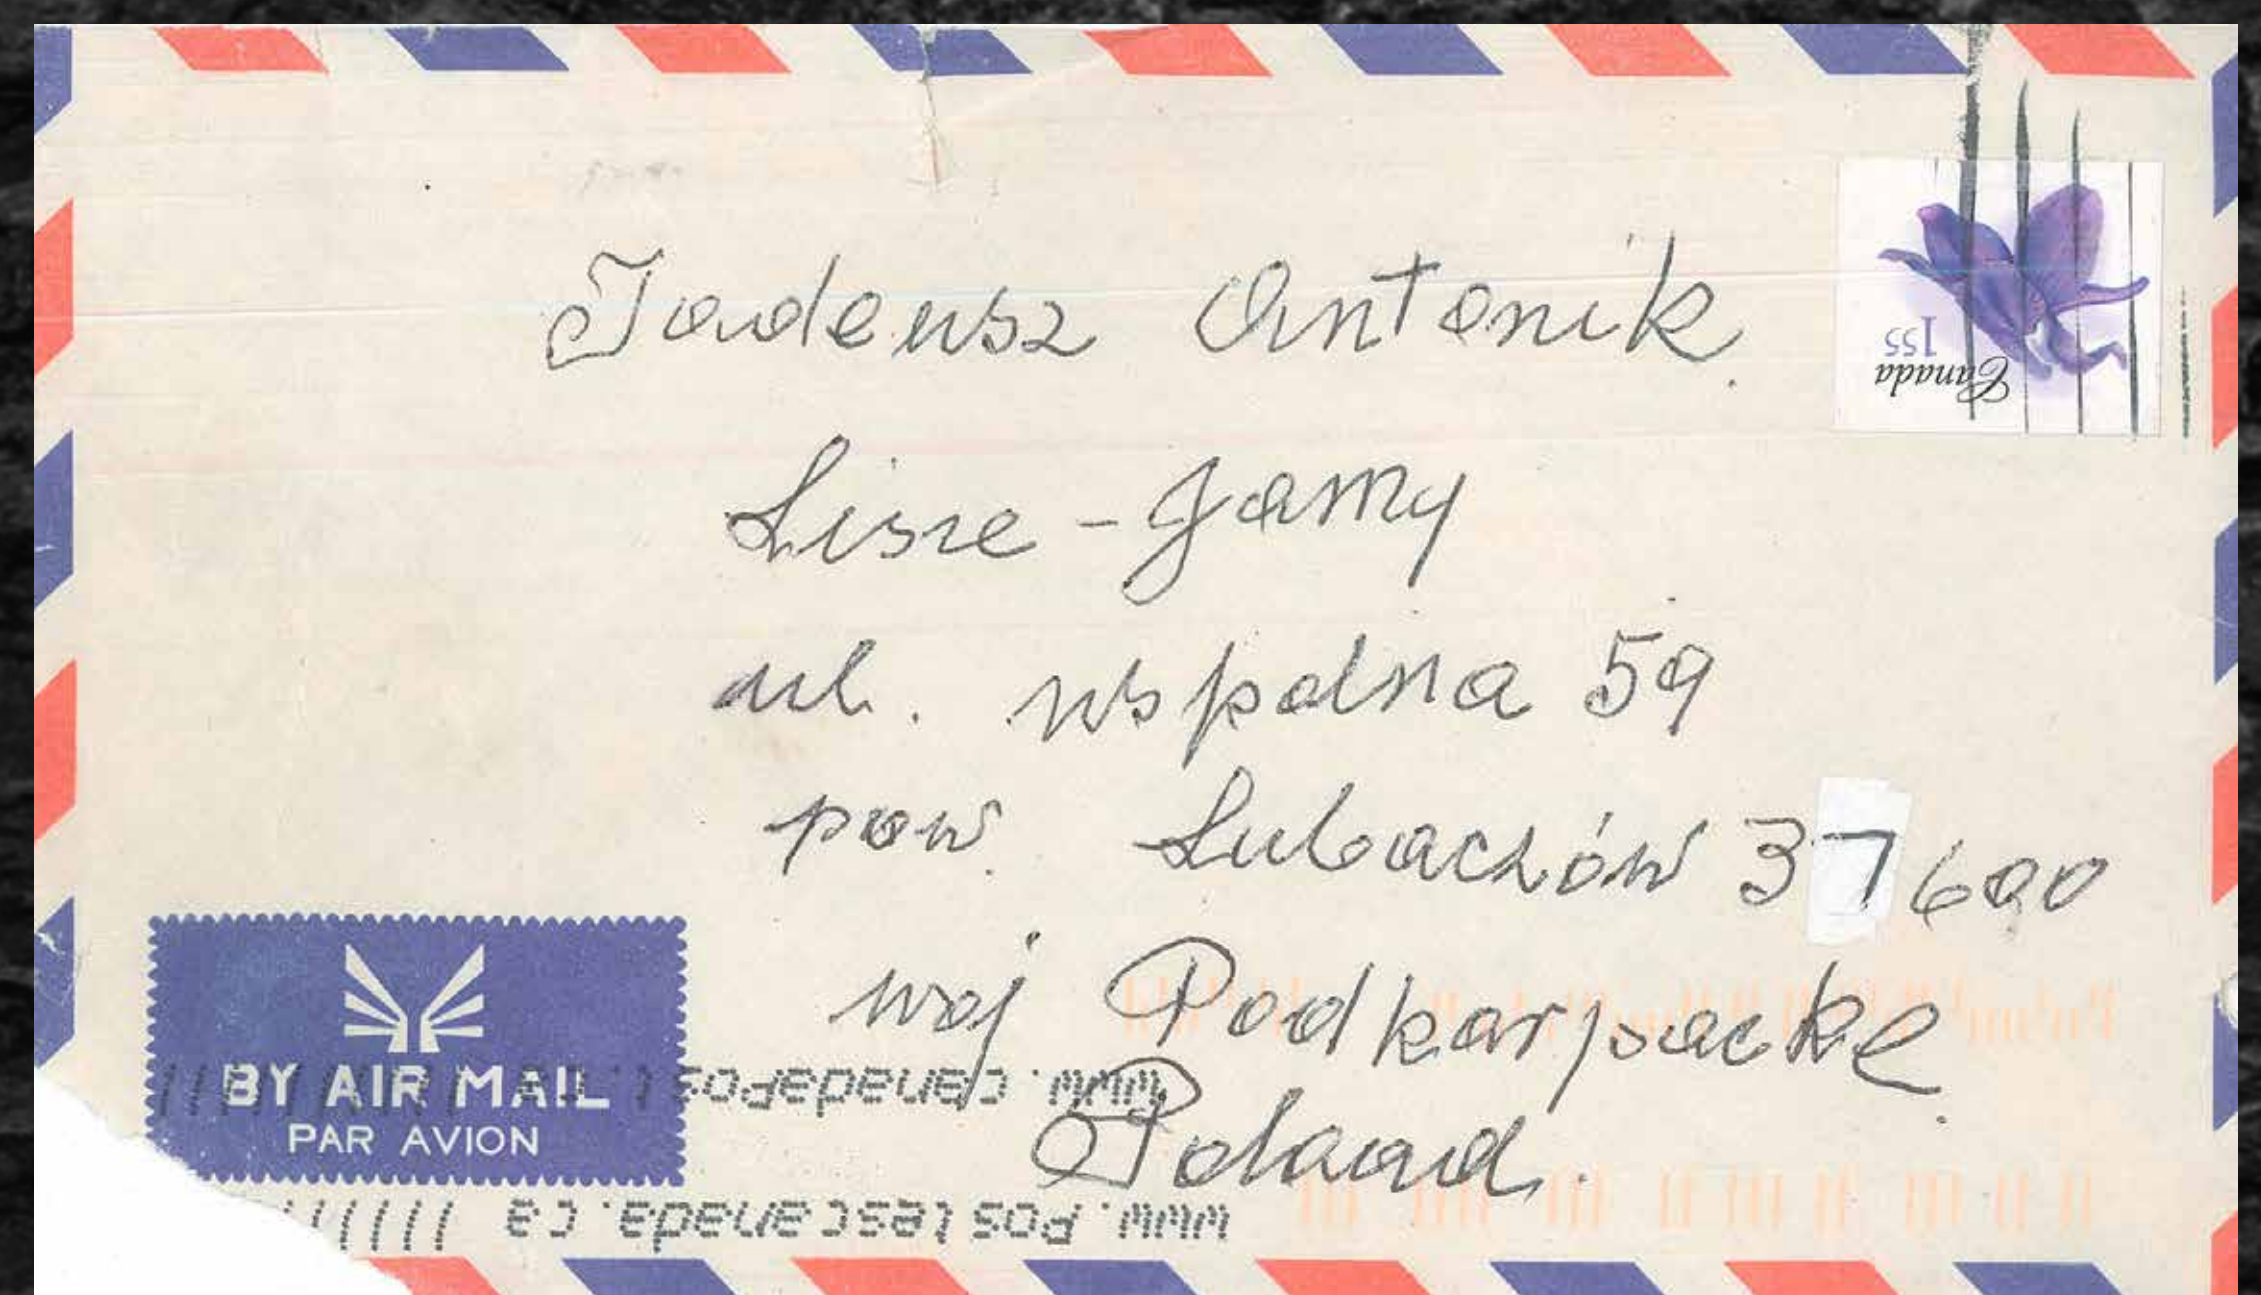 Tadeusz Antonik
Lisie-Jamy
ul. wspolna 59
pow. Lubaczów 37600
woj Podkarpacke
Poland.
Canada
1 55
BY AIR MAIL
PAR AVION
www.canadapost.ca
www.postescanada.ca